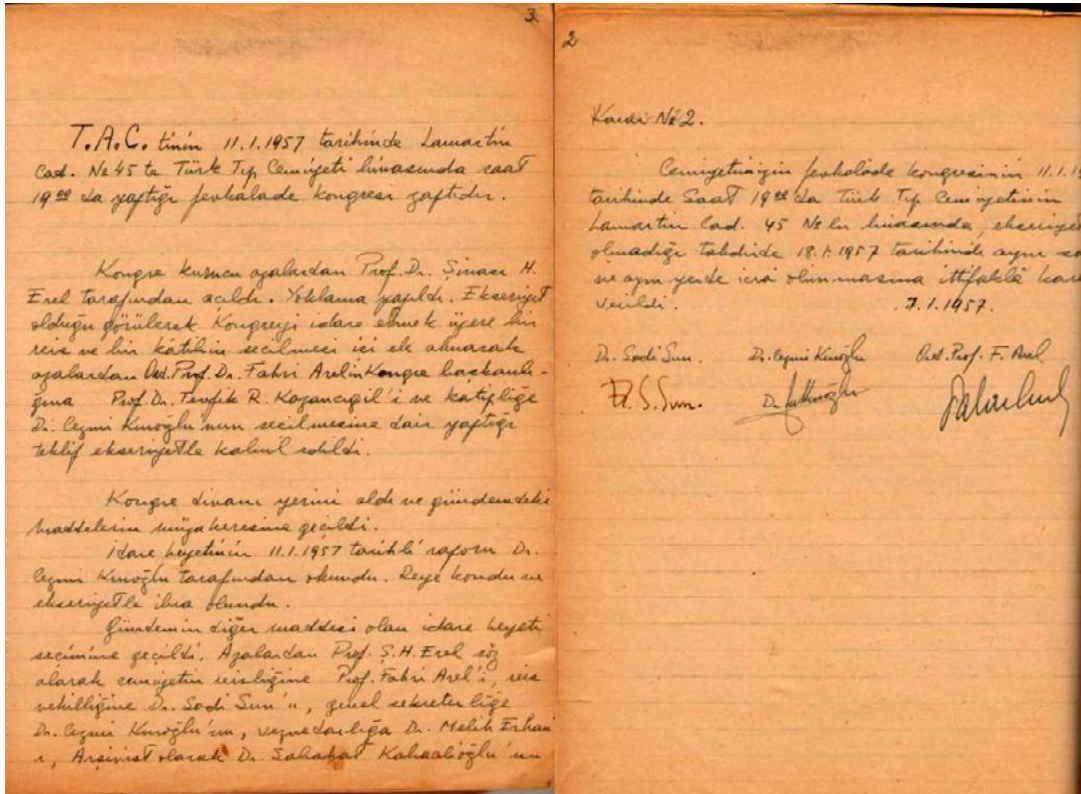 3
T.A.C. tinin 11.1.1957 tarihinde Lamartin
Cad. No 45 te Türk Tıp Cemiyeti binasında saat
19⁰⁰ da yaptığı fevkalade kongresi zaptıdır.
Kongre kurucu azalardan Prof. Dr. Şinasi H.
Erel tarafından açıldı. Yoklama yapıldı. Ekseriyet
olduğu görülerek Kongreyi idare etmek üzere bir
reis ve bir kâtibin seçilmesi ele alınarak
azalardan Ord. Prof. Dr. Fahri Arelin Kongre başkanlı-
ğına Prof. Dr. Tevfik R. Kazancıgil'i ve kâtipliğe
Dr. Cezmi Kınoğlu'nun seçilmesine dair yaptığı
teklif ekseriyetle kabul edildi.
Kongre divanı yerini aldı ve gündemdeki
maddelerin müzakeresine geçildi.
idare heyetinin 11.1.1957 tarihli raporu Dr.
Cezmi Kınoğlu tarafından okundu. Reye kondu ve
ekseriyetle ibra olundu.
Gündemin diğer maddesi olan idare heyeti
seçimine geçildi. Azalardan Prof. Ş.H. Erel söz
alarak cemiyetin reisliğine Prof. Fahri Arel'i, reis
vekilliğine Dr. Sadi Sun'u, genel sekreterliğe
Dr. Cezmi Kınoğlu'nu, veznedarlığa Dr. Melik Erhan'
ı, Arşivist olarak Dr. Sabahat Kabaalioğlu'nu
2
Karar No 2.
Cemiyetimizin fevkalade kongresinin 11.1.19
tarihinde Saat 19⁰⁰ da Türk Tıp Cemiyetinin
Lamartin Cad. 45 No lu binasında, ekseriyet
olmadığı takdirde 18.1.1957 tarihinde aynı sa
ve aynı yerde icra olunmasına ittifakla kara
verildi. 7.1.1957.
Dr. Sadi Sun. Dr. Cezmi Kınoğlu Ord. Prof. F. Arel
Dr. S. Sun.